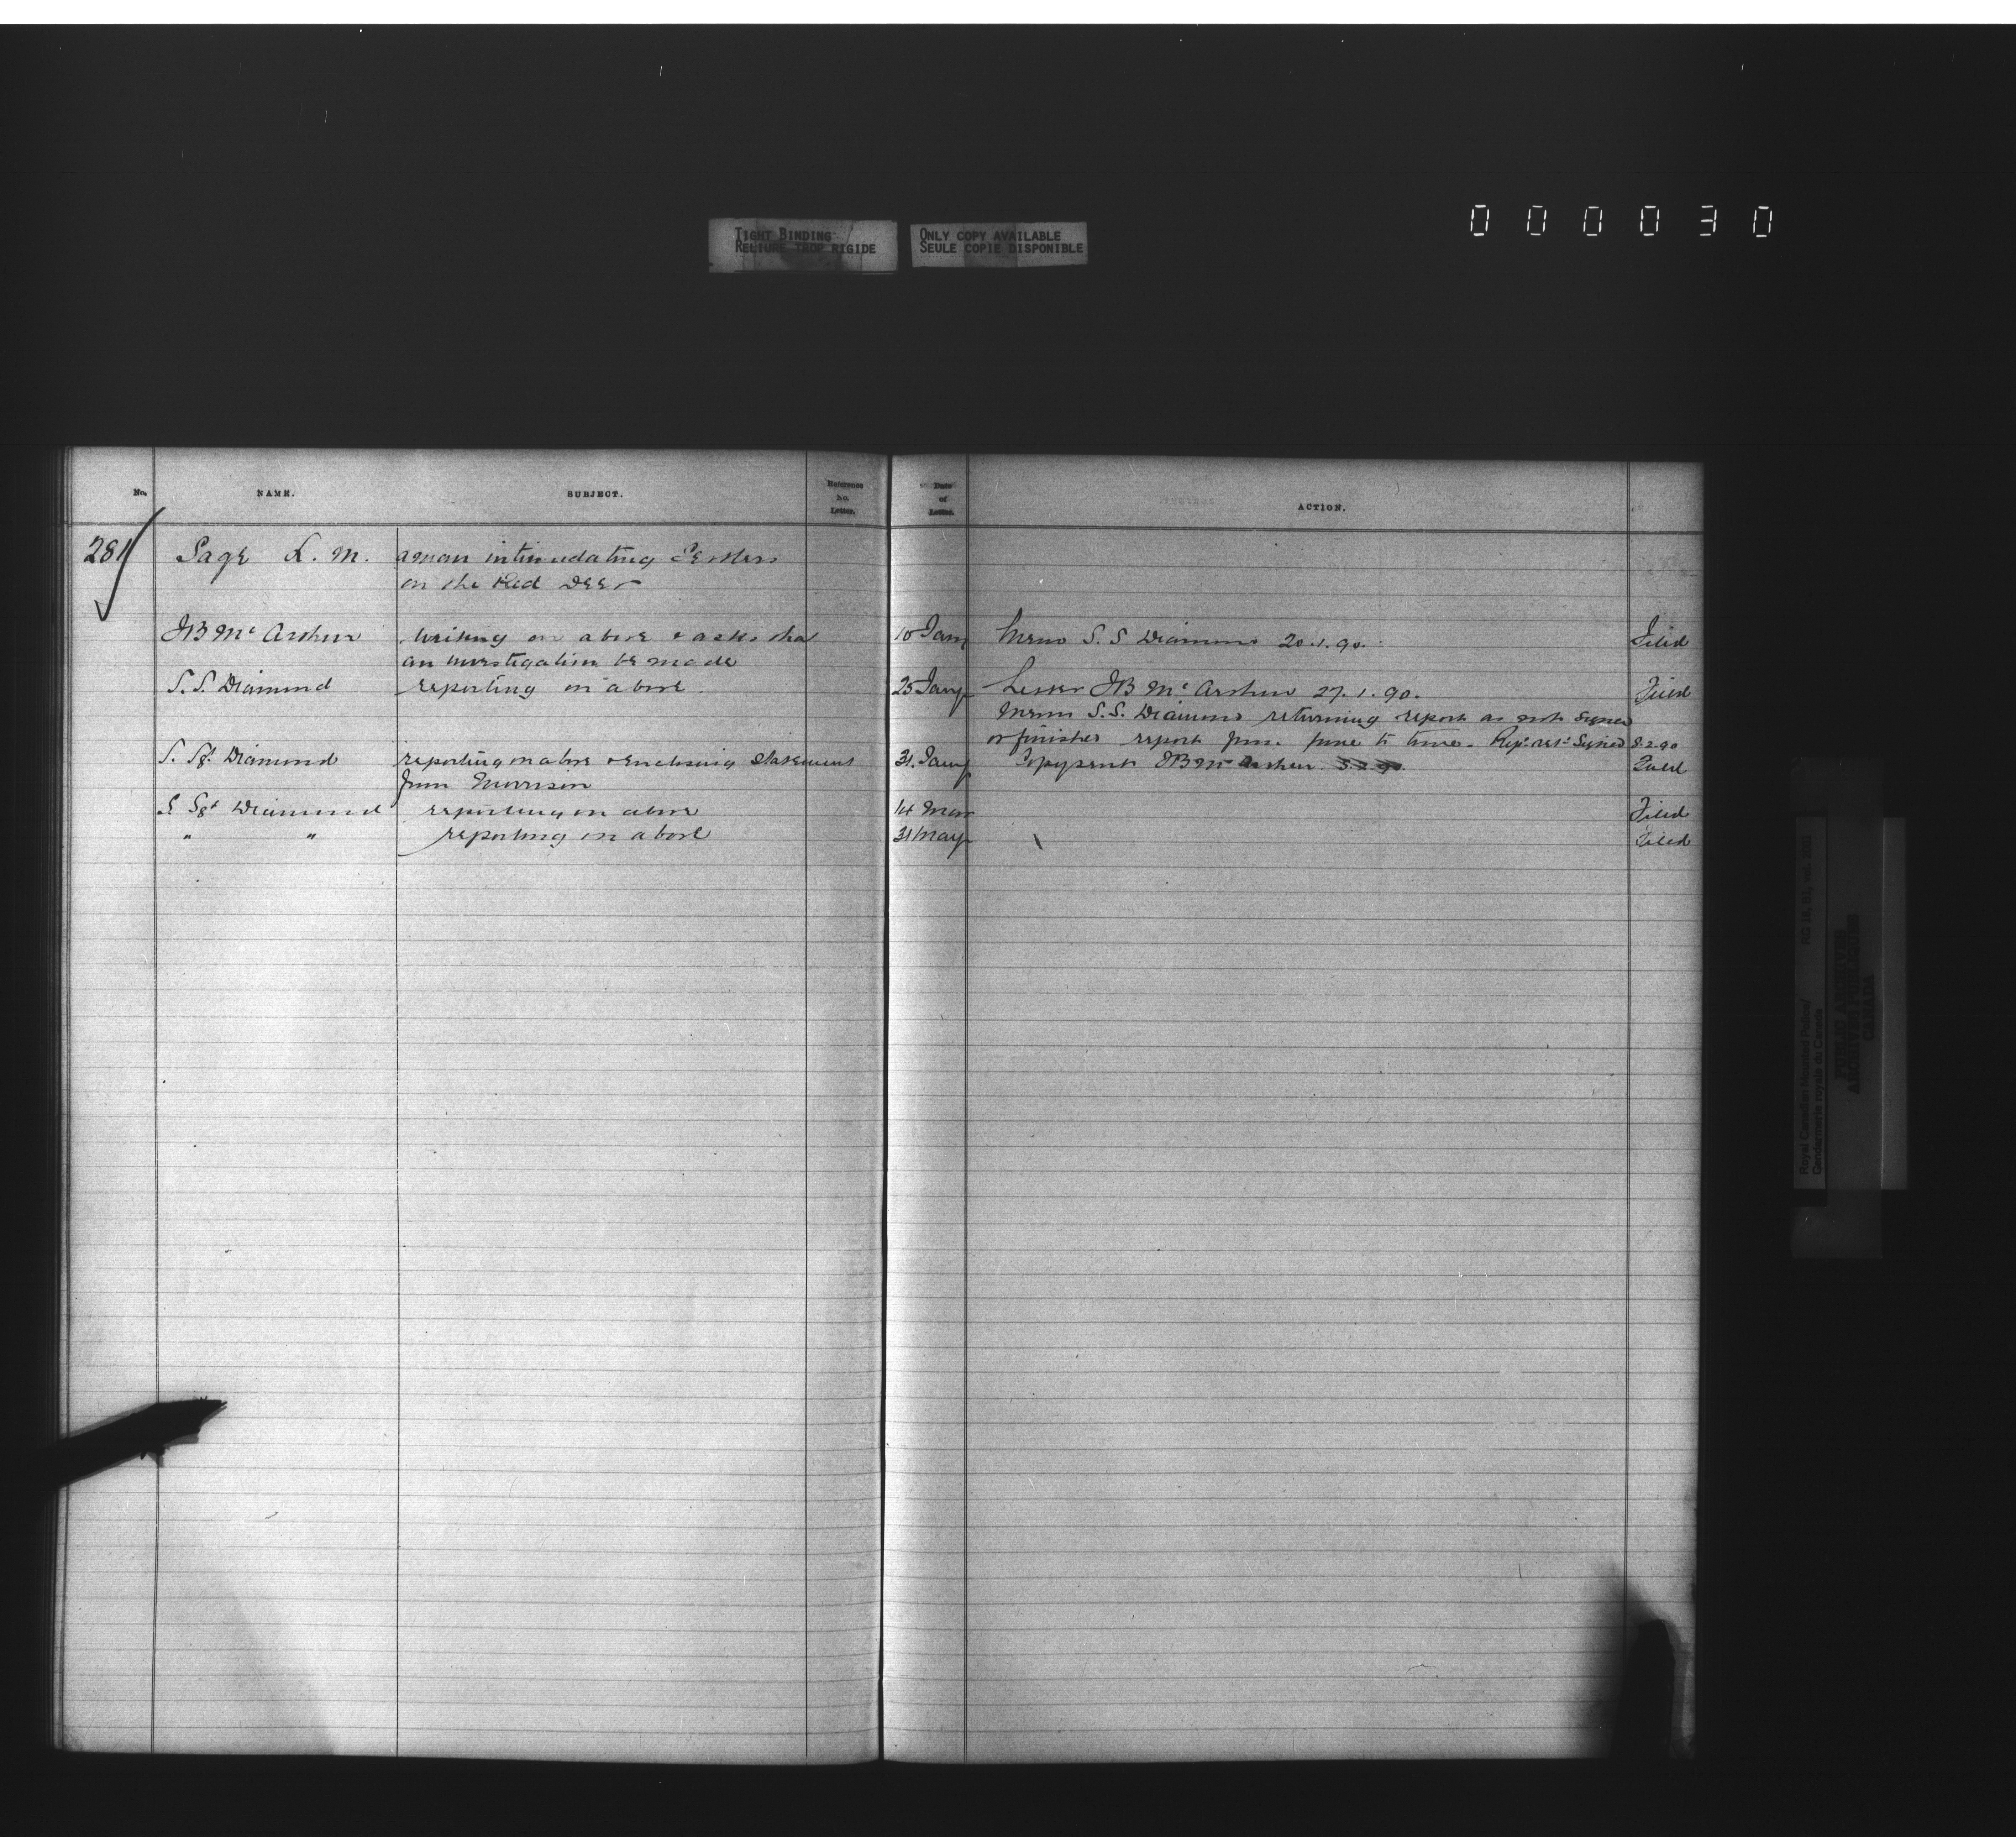 000030
TIGHT BINDING
RELIURE TROP RIGIDE
ONLY COPY AVAILABLE
SEULE COPIE DISPONIBLE
No. NAME. SUBJECT. Reference No. Letter. Date of Letter. ACTION.
281 Sage L. M. a man intimidating Settlers
on the Red Deer
JB Mc Arthur writing on above & asks that 10 Jany Memo S. S Diamond 20.1.90. Filed
an investigation be made
S. S. Diamond reporting on above. 25 Jany Letter JB Mc Arthur 27.1.90. Filed
Memo S.S. Diamond returning report as not signed
or finished report from time to time. Rept. ret. Signed 8.2.90
S. Sgt. Diamond reporting on above & enclosing statement 31. Jany Copy sent JB Mc Arthur. 3.2.90. Filed
from Morrison
S Sgt Diamond reporting on above 14 Mar Filed
" " reporting on above 31 May Filed
Royal Canadian Mounted Police/ RG 18, B1, vol.
Gendarmerie royale du Canada
PUBLIC ARCHIVES
ARCHIVES PUBLIQUES
CANADA